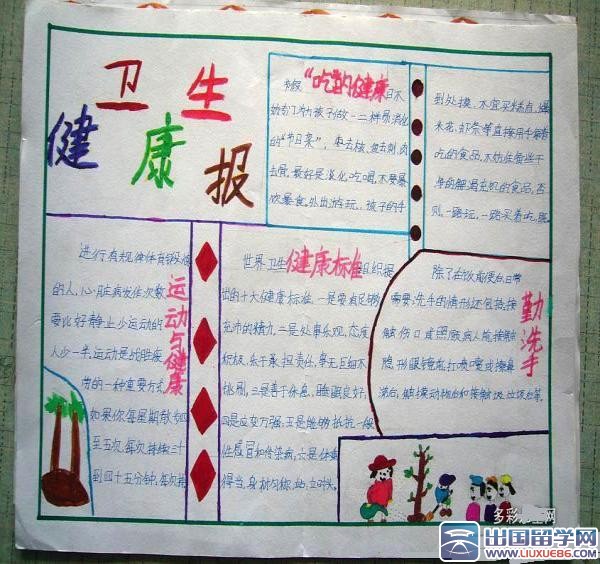 卫生
健康报
"吃的健康
的"节日菜",枣去核,鱼去刺,肉
去骨,最好是淡化吃喝,不要暴
饮暴食。外出游玩,孩子的手
到处摸,不宜买糕点、爆
米花、虾条等直接用手拿着
吃的食品,不妨准备些干
净的解渴充饥的食品,否
则,一路玩,一路买着吃,既
运动与健康
进行有规律体育锻炼
的人,心脏病发作次数
要比好静止少运动的
人少一半,运动是战胜疾
病的一种重要方式
如果你每星期散步四
至五次,每次持续三十
到四十五分钟,每次持
健康标准
世界卫生组织提
出的十大健康标准,一是要有足够
充沛的精力,二是处事乐观,态度
积极,乐于承担责任,事无巨细不
挑剔,三是善于休息,睡眠良好,
四是应变力强,五是能够抵抗一般
性感冒和传染病,六是体重
得当,身材匀称,站立时头、
勤洗手
除了台饮前便后日常
需要洗手的情形还包括接
触伤口或照顾病人前接触
隐形眼镜前打喷嚏或擤鼻
涕后,触摸动物后和接触垃圾后等,
多彩
出国留学网
www.liuxue86.com